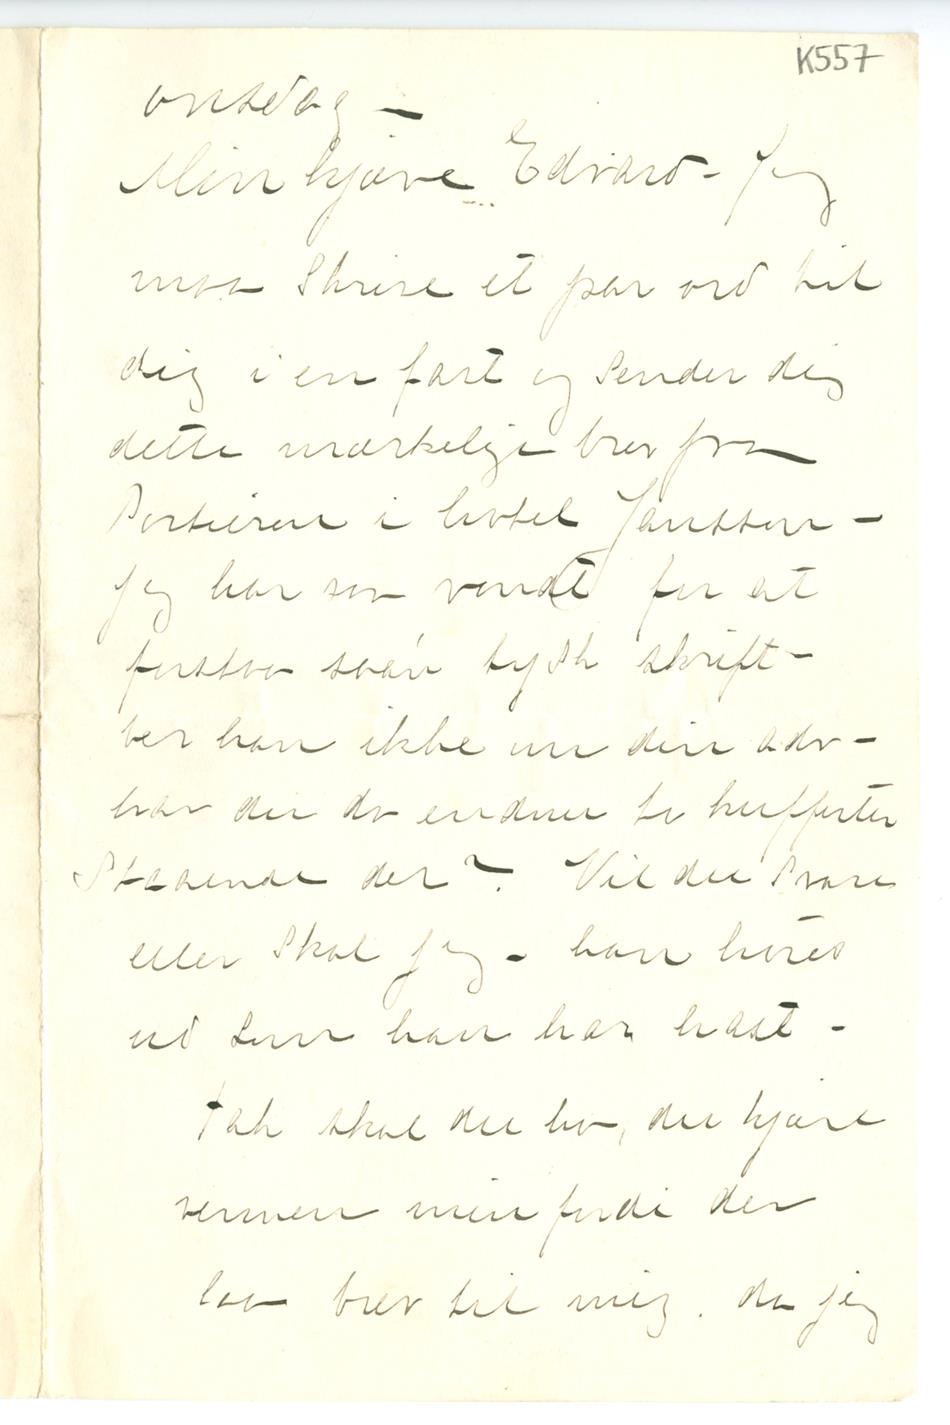 K557
onsdag –
Min kjære Edvard – Jeg
maa skrive et par ord til
dig i en fart og sender dig
dette mærkelige brev fra
Portieren i hotel Janssen –
Jeg har saa vondt for at
forstaa saa'n tysk skrift –
ber han ikke om din adr –
har du da endnu to kufferter
staaende der? Vil du svare
eller skal jeg – han høres
ud som han har hast –
Tak skal du ha, du kjære
vennen min fordi der
laa brev til mig. da jeg